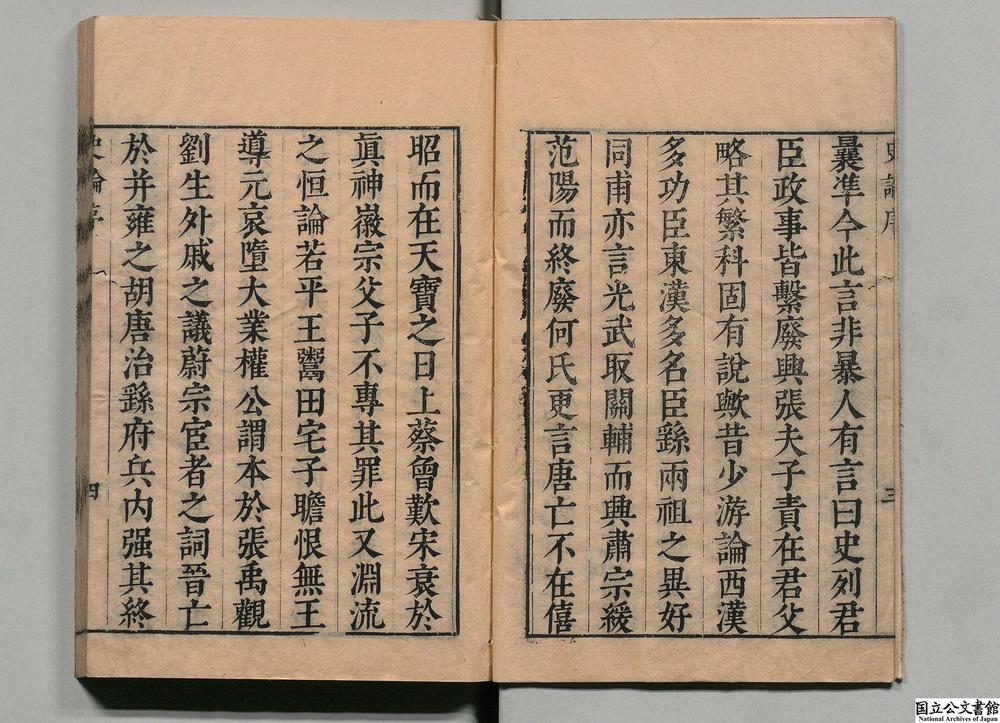 史論序
三
曩準今此言非暴人有言曰史列君
臣政事皆繫廢興張夫子責在君父
略其繁科固有說歟昔少游論西漢
多功臣東漢多名臣繇兩祖之異好
同甫亦言光武取關輔而興肅宗緩
范陽而終廢何氏更言唐亡不在僖
昭而在天寶之日上蔡曾歎宋衰於
眞神徽宗父子不專其罪此又淵流
之恒論若平王鬻田宅子瞻恨無王
導元哀墮大業權公謂本於張禹觀
劉生外戚之議蔚宗宦者之詞晉亡
於并雍之胡唐治繇府兵内强其終
史論序
四
国立公文書館
National Archives of Japan